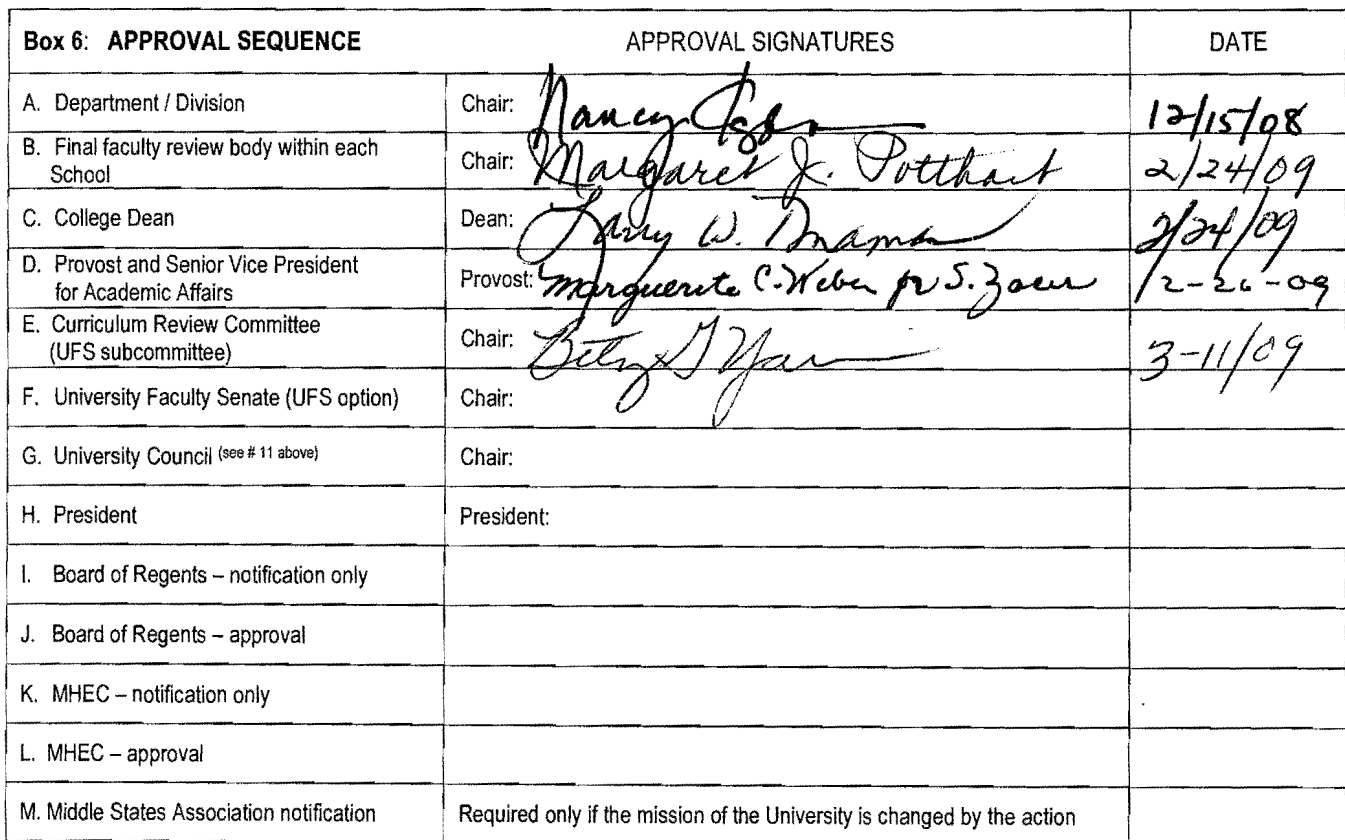 Box 6: APPROVAL SEQUENCE APPROVAL SIGNATURES DATE
A. Department / Division Chair: Nancy 12/15/08
B. Final faculty review body within each
School Chair: Margaret J. Potthast 2/24/09
C. College Dean Dean: Larry W. 2/24/09
D. Provost and Senior Vice President
for Academic Affairs Provost: Marguerite C. Weber for S. 2-26-09
E. Curriculum Review Committee
(UFS subcommittee) Chair: 3-11/09
F. University Faculty Senate (UFS option) Chair:
G. University Council (see # 11 above) Chair:
H. President President:
I. Board of Regents – notification only
J. Board of Regents – approval
K. MHEC – notification only
L. MHEC – approval
M. Middle States Association notification Required only if the mission of the University is changed by the action